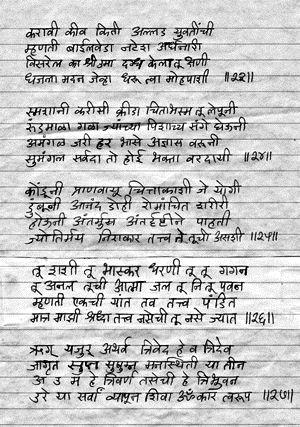 करावी कीव किती अल्लड युवतींची
म्हणती बाईलवेडा नटेश अर्धनारी
विसरेल का श्री उमा दग्ध केला तू क्षणी
धजला मदन जेव्हा धरू त्वा मोहपाशी ॥२३॥
स्मशानी करीसी क्रीडा चिताभस्म तू लेपूनी
रुंडमाळा गळा ज्यांच्या पिशाच्च संगे घेऊनी
अमंगळ जरी हर भासे अज्ञास वरूनी
सुमंगल सर्वदा तो होई भक्ता वरदायी ॥२४॥
कोंडूनी प्राणवायू चित्ताकाशी जे योगी
डुंबूनी आनंद डोही रोमांचित शरीरी
होऊनी अंतर्मुख अंतर्दृष्टीने पाहती
ज्योतिर्मय निराकार तत्त्व ते तूची असशी ॥२५॥
तू शशी तू भास्कर धरणी तू तू गगन
तू अनल तूची आत्मा जल तू नित पवन
म्हणुती एकची यांत तव तत्त्व पंडित
मात्र माझी श्रद्धा तत्त्व नसेची तू नसे ज्यात ॥२६॥
ऋग् यजुर् अथर्व त्रिवेद हे व त्रिदेव
जागृत सुप्त सुषुप्त मनःस्थिती या तीन
अ उ म हे त्रिवर्ण तसेची हे त्रिभुवन
उरे या सर्वां व्यापून शिवा ॐकार त्वरूप ॥२७॥